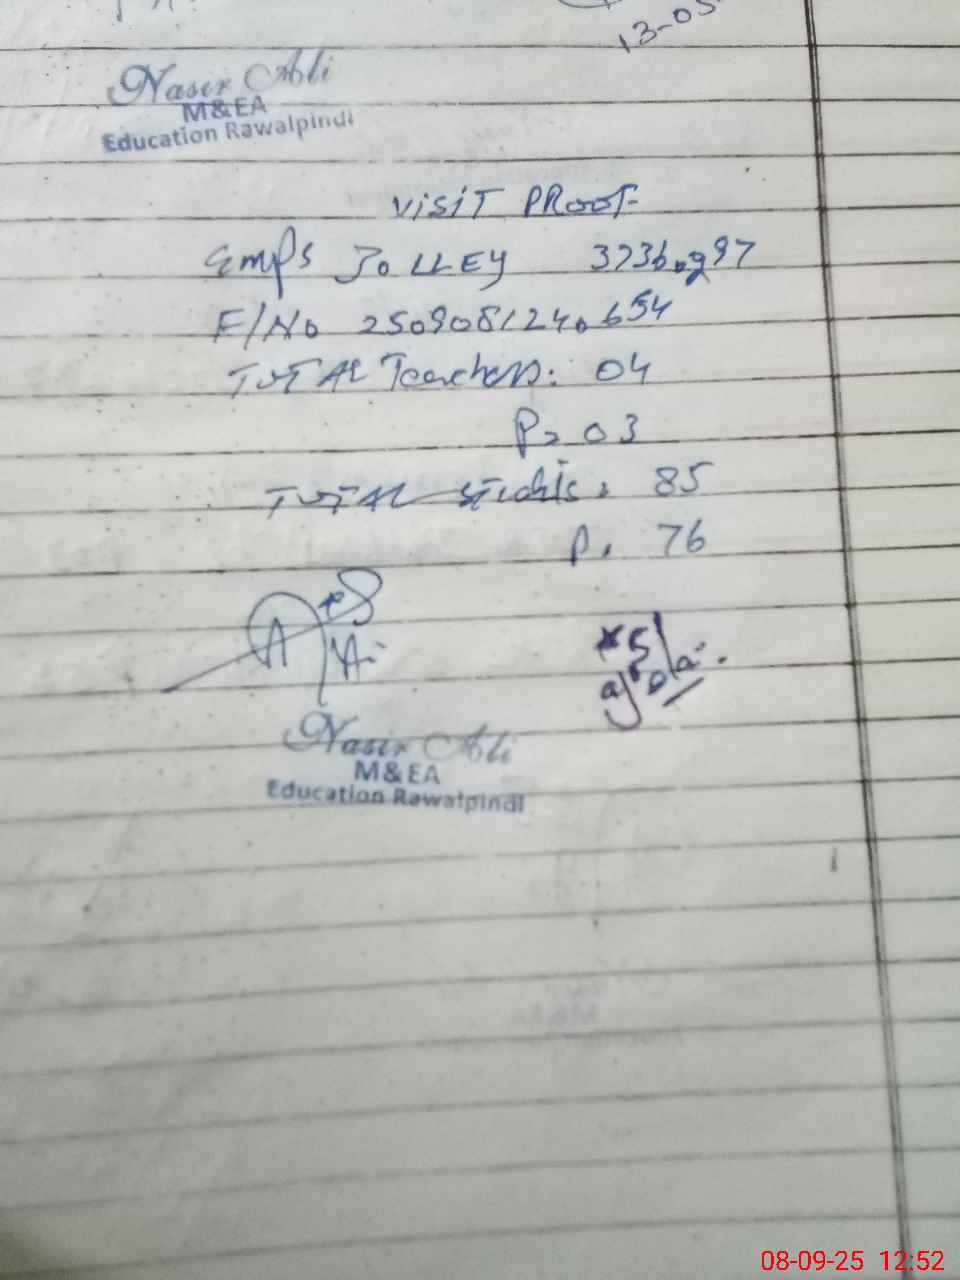 13-05
Nasir Ali
M&EA
Education Rawalpindi
VISIT PROOF
GMPS JOLLEY 373
F/No 2509081240654
TOTAL Teachers: 04
P= 03
TOTAL Students: 85
P. 76
Nasir Ali
M&EA
Education Rawalpindi
08-09-25 12:52